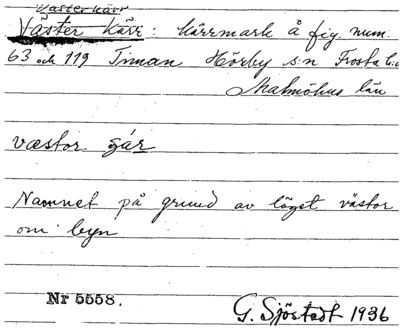 Västerkärr
Väster kärr: kärrmark å fig. num.
63 och 119 Hörby s:n Frosta h:d
Malmöhus län
væstor
Namnet på grund av läget västor
om byn
Nr 5558.
G. Sjöstedt 1936